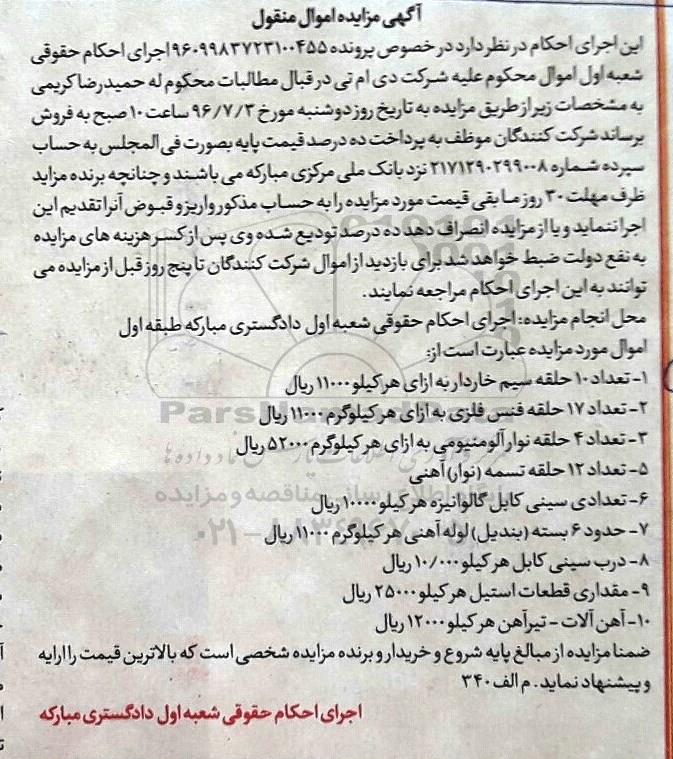 آگهی مزایده اموال منقول
این اجرای احکام در نظر دارد در خصوص پرونده ۹۶۰۹۹۸۳۷۲۳۱۰۰۴۵۵ اجرای احکام حقوقی
شعبه اول اموال محکوم علیه شرکت دی ام تی در قبال مطالبات محکوم له حمیدرضا کریمی
به مشخصات زیر از طریق مزایده به تاریخ روز دوشنبه مورخ ۹۶/۷/۳ ساعت ۱۰ صبح به فروش
برساند شرکت کنندگان موظف به پرداخت ده درصد قیمت پایه بصورت فی المجلس به حساب
سپرده شماره ۲۱۷۱۲۹۰۲۹۹۰۰۸ نزد بانک ملی مرکزی مبارکه می باشند و چنانچه برنده مزاید
ظرف مهلت ۳۰ روز مابقی قیمت مورد مزایده را به حساب مذکور واریز و قبوض آنرا تقدیم این
اجرا ننماید و یا از مزایده انصراف دهد ده درصد تودیع شده وی پس از کسر هزینه های مزایده
به نفع دولت ضبط خواهد شد برای بازدید از اموال شرکت کنندگان تا پنج روز قبل از مزایده می
توانند به این اجرای احکام مراجعه نمایند.
محل انجام مزایده: اجرای احکام حقوقی شعبه اول دادگستری مبارکه طبقه اول
اموال مورد مزایده عبارت است از:
۱- تعداد ۱۰ حلقه سیم خاردار به ازای هر کیلو ۱۱۰۰۰ ریال
۲- تعداد ۱۷ حلقه فنس فلزی به ازای هر کیلوگرم ۱۱۰۰۰ ریال
۳- تعداد ۴ حلقه نوار آلومنیومی به ازای هر کیلوگرم ۵۲۰۰۰ ریال
۵- تعداد ۱۲ حلقه تسمه (نوار) آهنی
۶- تعدادی سینی کابل گالوانیزه هر کیلو ۱۰۰۰۰ ریال
۷- حدود ۶ بسته (بندیل) لوله آهنی هر کیلوگرم ۱۱۰۰۰ ریال
۸- درب سینی کابل هر کیلو ۱۰/۰۰۰ ریال
۹- مقداری قطعات استیل هر کیلو ۲۵۰۰۰ ریال
۱۰- آهن آلات - تیرآهن هر کیلو ۱۲۰۰۰ ریال
ضمنا مزایده از مبالغ پایه شروع و خریدار و برنده مزایده شخصی است که بالاترین قیمت را ارایه
و پیشنهاد نماید. م الف ۳۴۰
اجرای احکام حقوقی شعبه اول دادگستری مبارکه